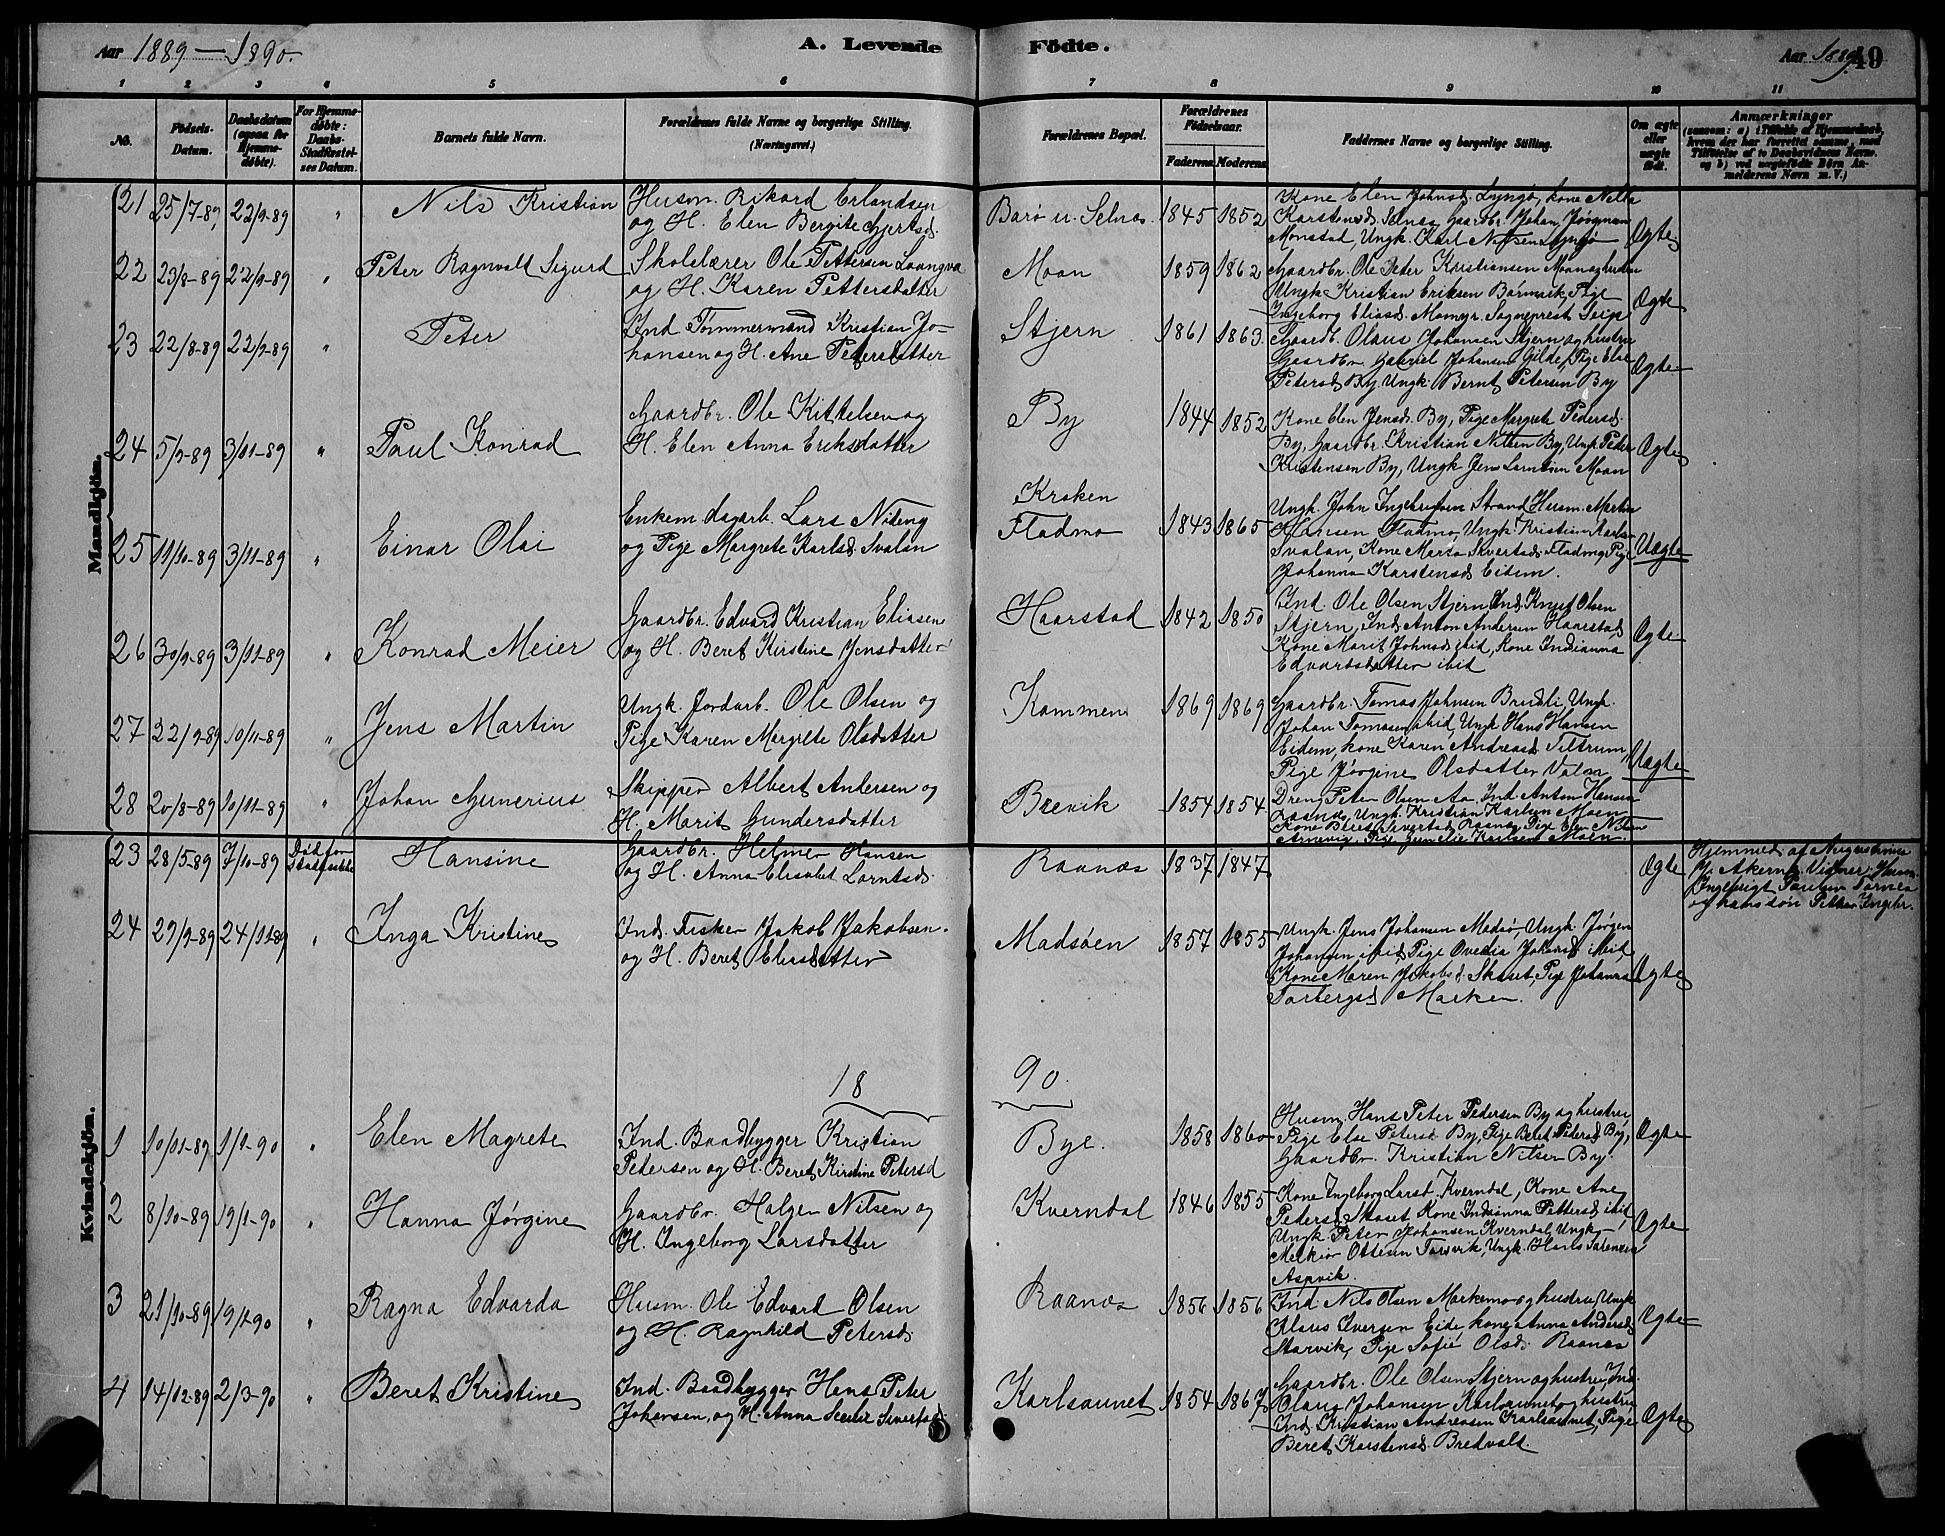 Aar 1889–1890.
A. Levende Födte.
Aar 1889.
49
1 2 3 4 5 6 7 8 9 10 11
No.
Födsels-
Datum.
Daabsdatum
(ogsaa for
Hjemme-
døbte).
For Hjemme-
døbte:
Daabs-
Stadfæstel-
ses Datum.
Barnets fulde Navn.
Forældrenes fulde Navne og borgerlige Stilling.
(Næringsvei.)
Forældrenes Bopæl.
Forældrenes
Födselsaar.
Faderens. Moderens.
Faddernes Navne og borgerlige Stilling.
Om ægte
eller
uægte
født.
Anmærkninger
Mandkjön.
21 25/7-89 22/9-89 " Nils Kristian
Husm. Rikard Erlandsen
og H. Elen Bergite Gjertsd.
Barø u. Selnes 1845 1852
Kone Elen Johnsd. Lyngø, Kone
Karstensd. Selnes, Gaardbr. Johan Jørgensen
Monstad, Ungk. Karl Nilsen Lyngø
Ægte
22 23/8-89 22/9-89 " Peter Ragnvald Sigurd
Skolelærer Ole Pettersen
og H. Karen Pettersdatter
Moan 1859 1862
Gaardbr. Ole Peter Kristiansen Moan og hustru
Ungk. Kristian Eriksen Børmark, Pige
Ingeborg Eliasd. Momyr, Sogneprest
Ægte
23 22/8-89 22/9-89 " Peter
Ind. Tømmermand Kristian Jo-
hansen og H. Ane Petersdatter
Stjern 1861 1863
Olaus Johansen Stjern og hustru
Gaardbr. Gabriel Johansen Gilde, Pige Else
Petersd. By, Ungk. Bernt Petersen By
Ægte
24 5/9-89 3/11-89 " Paul Konrad
Gaardbr. Ole Kittelsen og
H. Elen Anna Eriksdatter
By 1844 1852
Kone Elen Jensd. By, Pige Margrete Pedersd.
By, Gaardbr. Kristian Nilsen By, Ungk. Peder
Kristensen By, Ungk. Jens Larntsen Moan
Ægte
25 11/10-89 3/11-89 " Einar Olai
Enkem. dagarb. Lars Niteng
og Pige Margrete Karlsd. Svalan
Krsken
Fladmo 1843 1865
Ungk. John Ingebrigtsen Strand, Husm. Martin
Hansen Fladmo, Ungk. Kristian Karlsen
Svalan, Kone Marta Sivertsd. Fladmo, Pige
Johanna Karstensd. Eidem.
Uægte
26 30/9-89 3/11-89 " Konrad Meier
Gaardbr. Edvard Kristian Eliasen
og H. Beret Kirstine Jensdatter
Haarstad 1842 1850
Ind. Ole Olsen Stjern, Ind. Knut Olsen
Stjern, Ind. Anton Andersen Haarstad,
Kone Marit Johnsd. ibid, Kone Indianna
Edvardsdatter ibid
Ægte
27 22/9-89 10/11-89 " Jens Martin
Ungk. Jordarb. Ole Olsen og
Pige Karen Margrete Olsdatter
Kammen 1869 1869
Gaardbr. Tomas Johnsen Brudli, Ungk.
Johan Tomasen ibid, Ungk. Hans Hansen
Eidem, Kone Karen Andreasd. Tiltrum,
Pige Jørgine Olsdatter Valen
Uægte
28 20/8-89 10/11-89 " Johan Gunerius
Skipper Albert Andersen og
H. Marit Gundersdatter
Brevik 1854 1854
Dreng Peter Olsen Aa, Ind. Anton Hansen
Ungk. Kristian Karlsen Moen
Kone Beret Sivertsd. Raanes, Pige Elen Nilsen
Arnevig, Pige Karlsen Moen
Kvindekjön.
23 28/5-89 7/10-89 Död for
Stadfæstelse Hansine
Gaardbr. Helmer Hansen
og H. Anna Elisabet Larntsd.
Raanes 1837 1847
Ægte
Hjemmed. af
Akernes Vidner: Husm.
Ingebrigt Paulsen Tarnes
og hans søn Petter Ingebr.
24 29/9-89 24/11-89 " Inga Kristine
Ind. Fisker Jakob Jakobsen
og H. Beret Eliasdatter
Madsøen 1857 1855
Ungk. Jens Johansen Madsø, Ungk. Jørgen
Johansen ibid, Pige Ovedia Johansd. ibid,
Kone Maren Jakobsd. Skaset, Pige Johanna
Torbergsd. Marken.
Ægte
18 90.
1 10/11-89 1/1-90 " Elen Magrete
Ind. Baadbygger Kristian
Petersen og H. Beret Kirstine Petersd
Bye. 1858 1860
Husm. Hans Peter Pedersen By og hustru,
Pige Else Petersd. By, Pige Beret Petersd. By,
Gaardbr. Kristian Nilsen By.
Ægte
2 8/10-89 19/1-90 " Hanna Jørgine
Gaardbr. Halgen Nilsen og
H. Ingeborg Larsdatter
Kverndal 1846 1855
Kone Ingeborg Larsd. Kverndal, Kone Ane
Pedersd. Skaset, Kone Indianna Pettersd. ibid,
Ungk. Peter Johansen Kverndal, Ungk.
Melkior Ottesen Tarsvik, Ungk. Hans Sørensen
Aspvik.
Ægte
3 21/10-89 19/1-90 " Ragna Edvarda
Husm. Ole Edvard Olsen
og H. Ragnhild Petersd.
Raanes 1856 1856
Ind. Nils Olsen Markemo og hustru, Ungk.
Olaus Iversen Eide, Kone Anna Andersd.
Starvik, Pige Sofie Olsd. Raanes
Ægte
4 14/12-89 2/3-90 " Beret Kristine
Ind. Baadbygger Hans Peter
Johansen, og H. Anna Sivertsd.
Karlsaunet 1854 1867
Gaardbr. Ole Olsen Stjern og hustru, Ind.
Olaus Johansen Karlsaunet og hustru
Ind. Kristian Andreasen Karlsaunet, Pige
Beret Karstensd. Bredvold.
Ægte